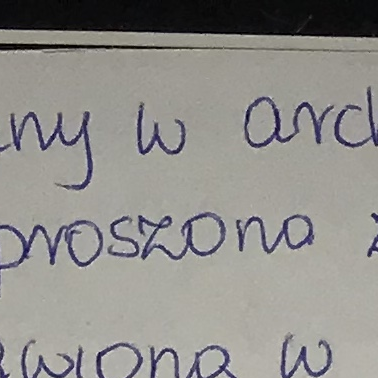 ny w arc
proszona
wiona w